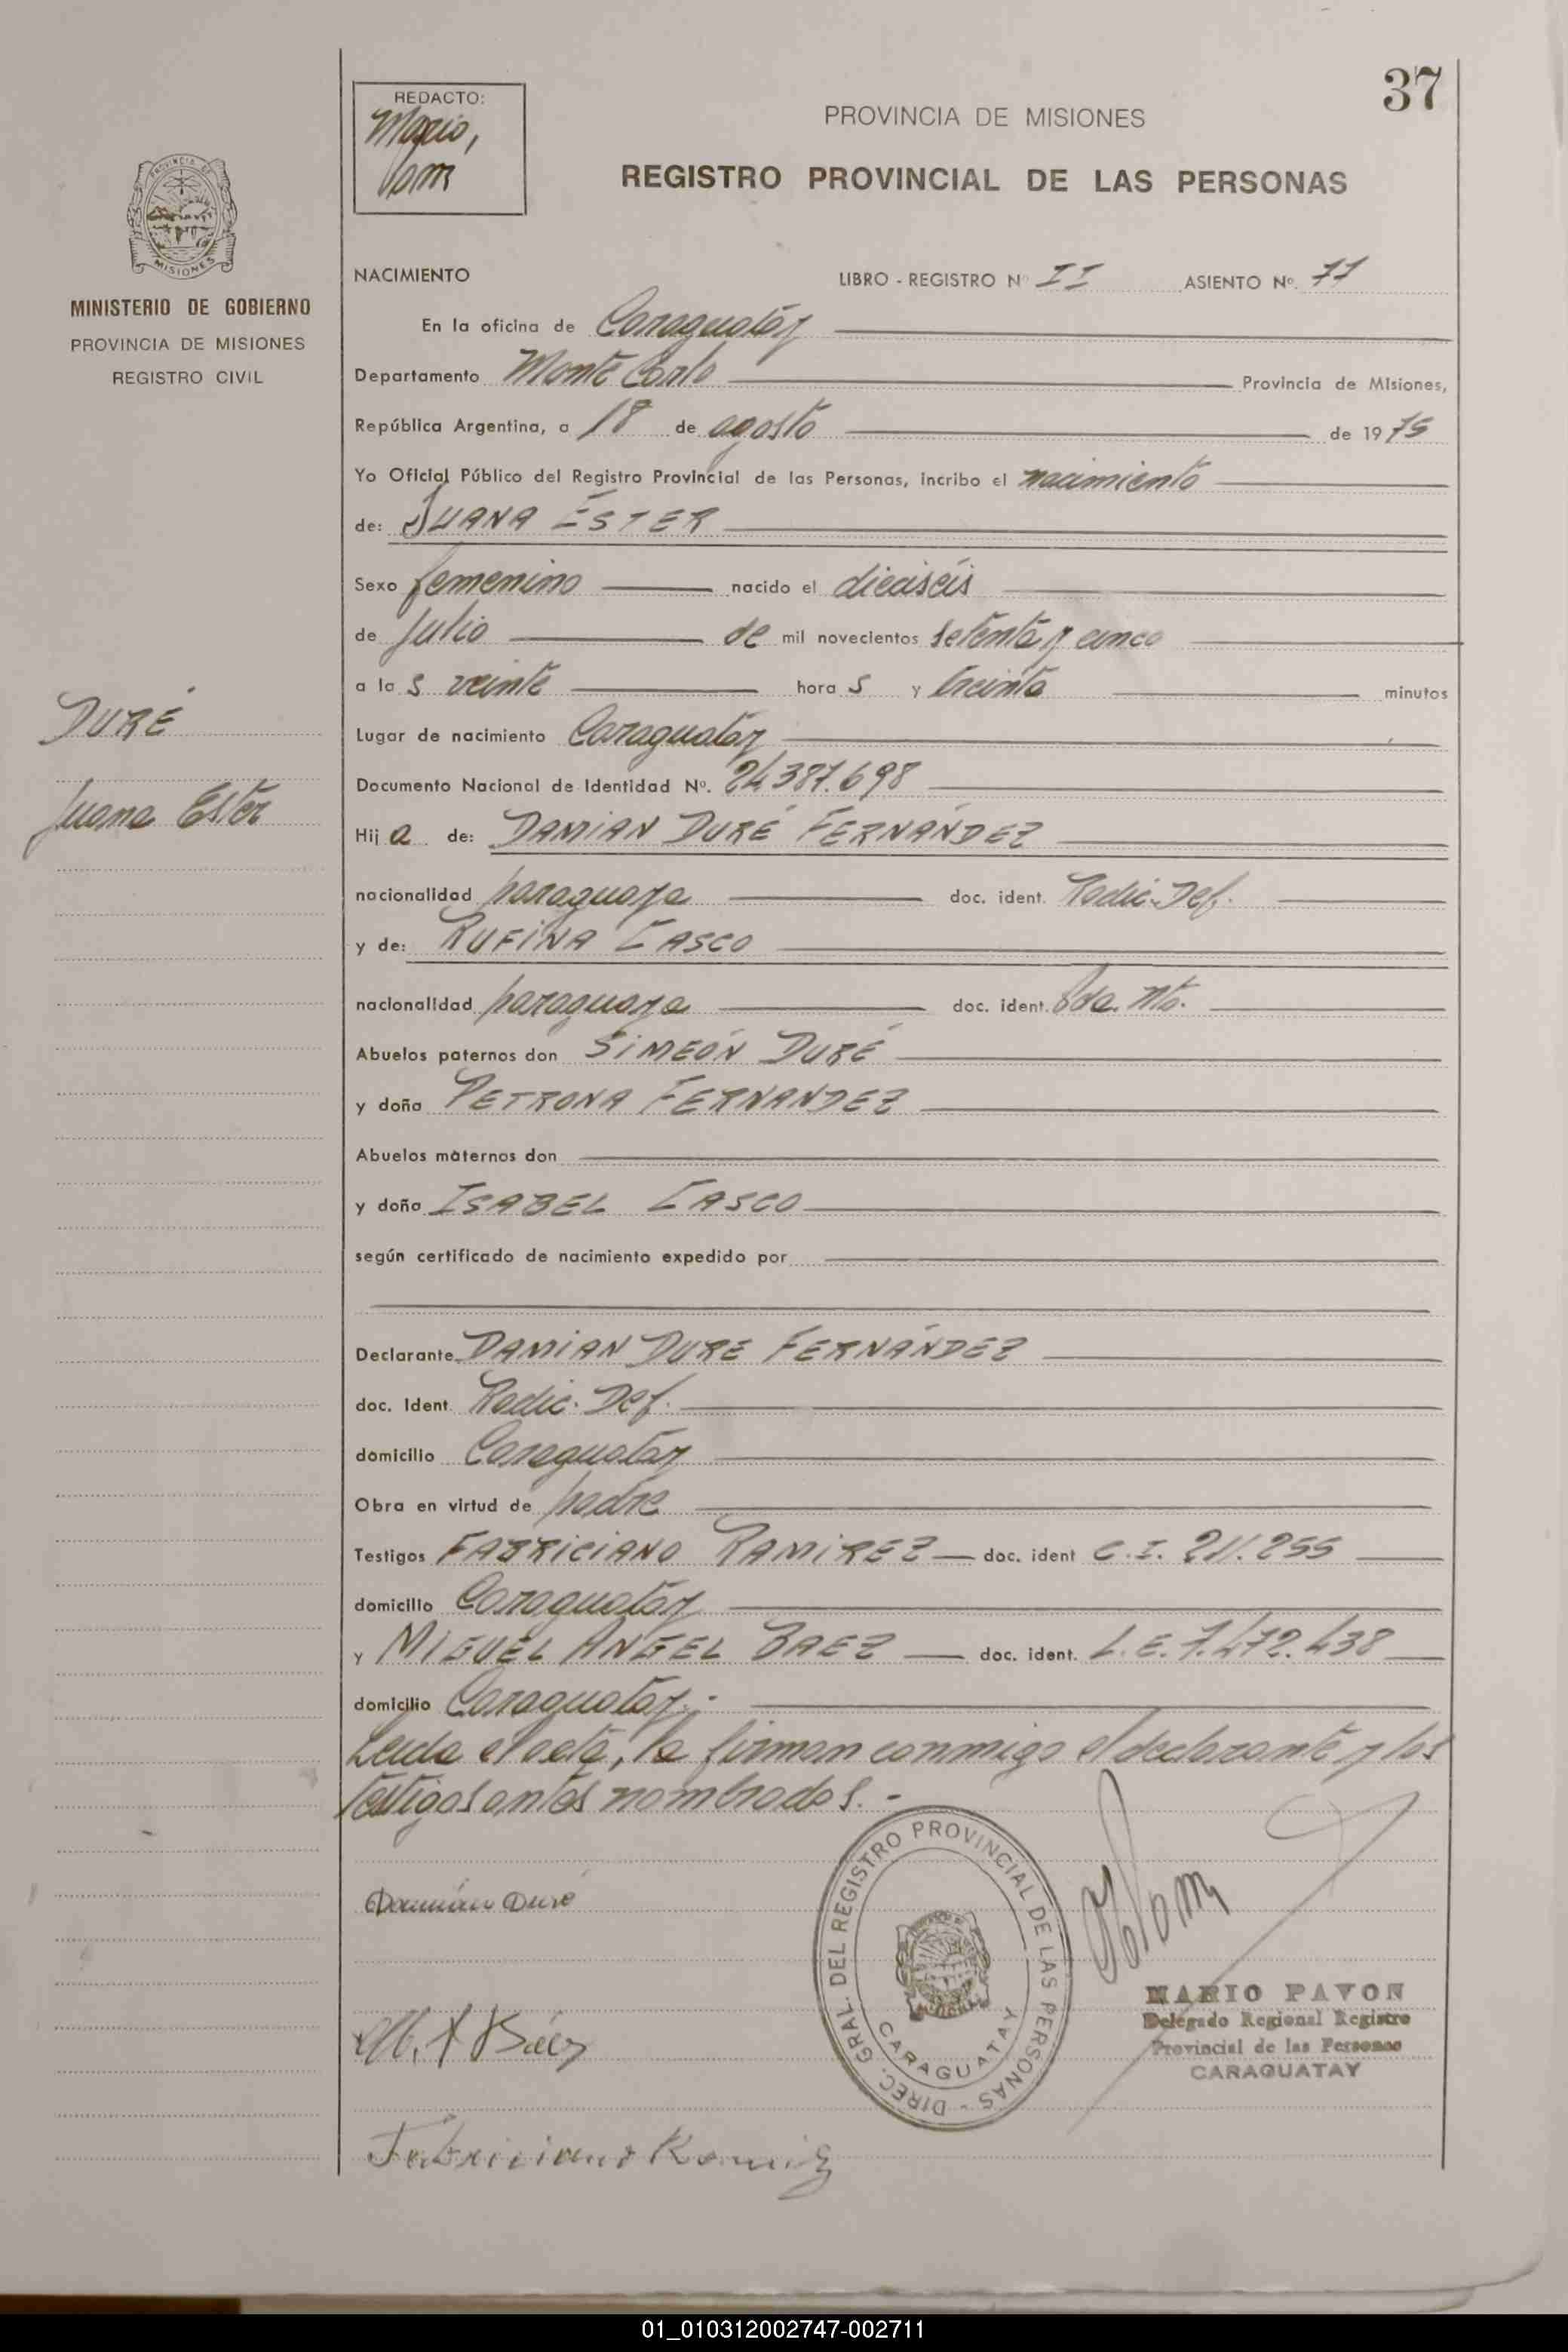 37
REDACTO:
Mario,
PROVINCIA DE MISIONES
REGISTRO PROVINCIAL DE LAS PERSONAS
PROVINCIA DE
MISIONES
MINISTERIO DE GOBIERNO
PROVINCIA DE MISIONES
REGISTRO CIVIL
NACIMIENTO LIBRO - REGISTRO Nº II ASIENTO Nº. 71
En la oficina de Caraguatáy
Departamento Monte Carlo Provincia de Misiones,
República Argentina, a 18 de agosto de 1975
Yo Oficial Público del Registro Provincial de las Personas, incribo el nacimiento
de: JUANA ESTER
Sexo femenino nacido el dieciséis
de Julio de mil novecientos setenta y cinco
a la s veinte hora s y treinta minutos
DURÉ
Juana Ester
Lugar de nacimiento Caraguatáy
Documento Nacional de Identidad Nº. 24.387.698
Hij a de: DAMIAN DURÉ FERNÁNDEZ
nacionalidad paraguaya doc. ident. Radic. Def.
y de: RUFINA CASCO
nacionalidad paraguaya doc. ident.
Abuelos paternos don SIMEÓN DURÉ
y doña PETRONA FERNANDEZ
Abuelos maternos don
y doña ISABEL CASCO
según certificado de nacimiento expedido por
Declarante DAMIAN DURE FERNÁNDEZ
doc. Ident. Radic. Def.
domicilio Caraguatáy
Obra en virtud de padre
Testigos FABRICIANO RAMIREZ doc. ident C.I. 211.255
domicilio Caraguatáy
y MIGUEL ANGEL BAEZ doc. ident. L.E. 7.472.438
domicilio Caraguatáy.-
Leida el acta, la firman conmigo el declarante y los
testigos antes nombrados.-
Damián Duré
M. A Báez
Fabriciano Ramirez
DIREC. GRAL. DEL REGISTRO PROVINCIAL DE LAS PERSONAS -
CARAGUATAY
MARIO PAVON
Delegado Regional Registro
Provincial de las Personas
CARAGUATAY
01_010312002747-002711